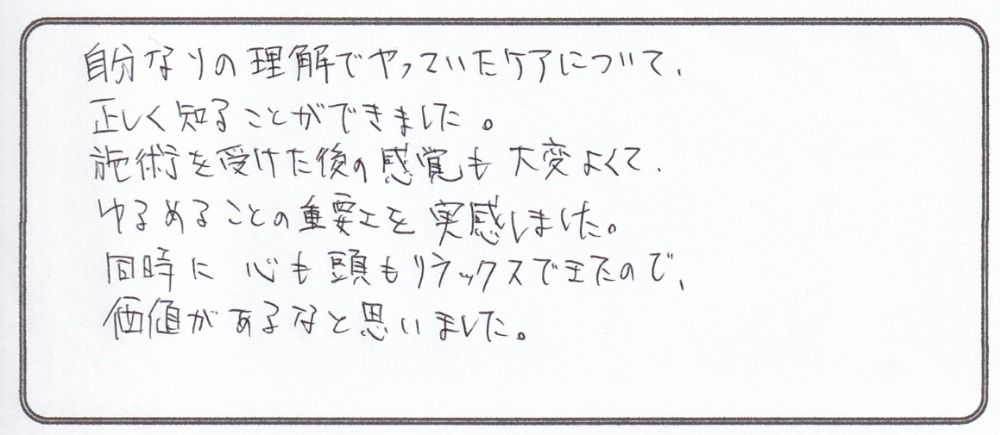 自分なりの理解でやっていたケアについて、
正しく知ることができました。
施術を受けた後の感覚も大変よくて、
ゆるめることの重要さを実感しました。
同時に心も頭もリラックスできたので、
価値があるなと思いました。